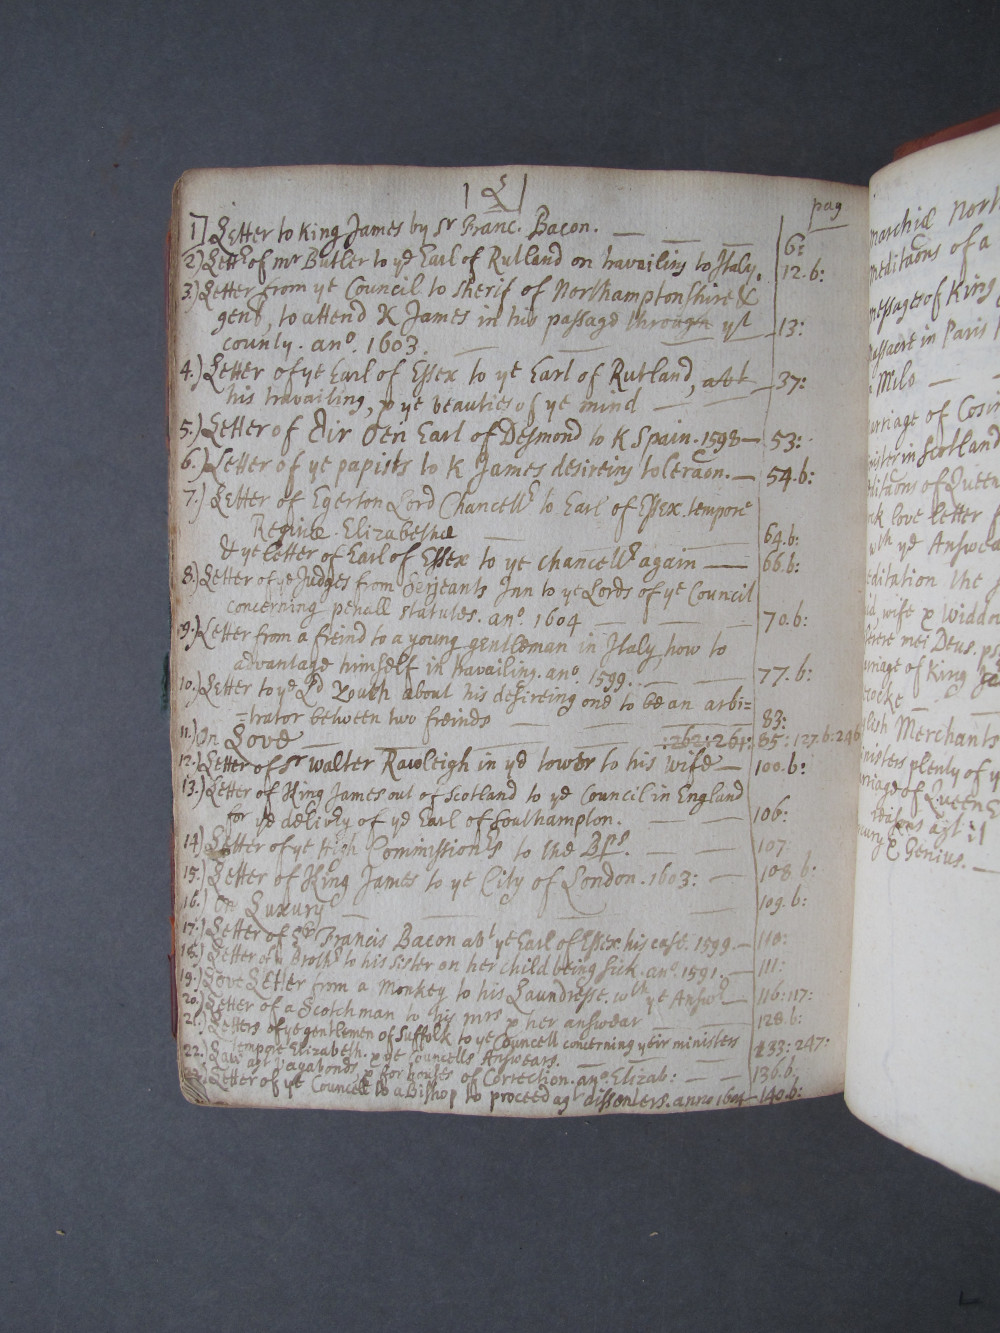 | L |
pag
1] Letter to King James by Sr Franc. Bacon. — — — 6:
2.) Lettr of mr Butler to ye Earl of Rutland on travailing to Italy. 12.b:
3.) Letter from ye Council to sherif of Northamptonshire &
gent, to attend K James in his passage through yt — 13:
county. ano. 1603. — — —
4.) Letter of ye Earl of Essex to ye Earl of Rutland, abt — 37:
his travailing, & ye beauties of ye mind — — —
5.) Letter of Sir Oen Earl of Desmond to K Spain. 1598 — 53:
6.) Letter of ye papists to K James desireing toleraon. — 54.b:
7.) Letter of Egerton Lord Chancellr to Earl of Essex. tempore
Reginæ Elizabethæ — — — 64.b:
& ye letter of Earl of Essex to ye chancellr again — 66.b:
8.) Letter of ye Judges from Serjeants Inn to ye Lords of ye Council
concerning penall statutes. ano. 1604 — — — 70.b:
9.) Letter from a freind to a young gentleman in Italy, how to
advantage himself in travailing. ano 1599. — — — 77.b:
10.) Letter to ye Ld about his desireing one to be an arbi=
=trator between two freinds — — — 83:
11.) On Love — — — :262: 261: 85: 127.b: 246
12.) Letter of Sr walter Rawleigh in ye tower to his wife — 100.b:
13.) Letter of King James out of Scotland to ye Council in England
for ye delivry of ye Earl of Southampton. — — 106:
14) Letter of ye High Commissionrs to the Bps. — — 107
15.) Letter of King James to ye City of London. 1603: — 108 b:
16.) On Luxury — — — 109. b:
17.) Letter of Sr Francis Bacon abt ye Earl of Essex his case. 1599. — 110:
18.) Letter of a Brothr to his sister on her child being sick. ano. 1591. — 111:
19.) Love Letter from a Monkey to his Laundresse. wth ye Answr — 116: 117:
20.) Letter of a Scotchman to his mrs & her answear — — 128.b:
21.) Letters of ye gentlemen of Suffolk to ye Councell concerning yeir ministers
tempore Elizabeth. & ye Councells Answears. — — 133: 247:
22.) Law agt vagabonds, & for houses of Correction. ano. Elizab: — — 136.b:
23.) Letter of ye Councell to a Bishop to proceed agt dissenters. anno 1604 — 140.b:
marchiæ North
meditaons of a
messages of King
Massacre in Paris
Milo — —
arriage of Cosm
nister in Scotland
ditaons of Queen
nk love letter f
wth ye Answea
editation the
wife & Widdow
serere mei Deus. ps
arriage of King Ja
cocke —
glish Merchants
inisters plenty of ye
rriage of Queen E
reasons agt it
ury & Genius. —